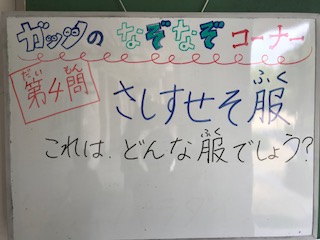 ガッツの なぞなぞ コーナー
だい もん
第4問
ふく
さしすせそ服
ふく
これは、どんな服でしょう?